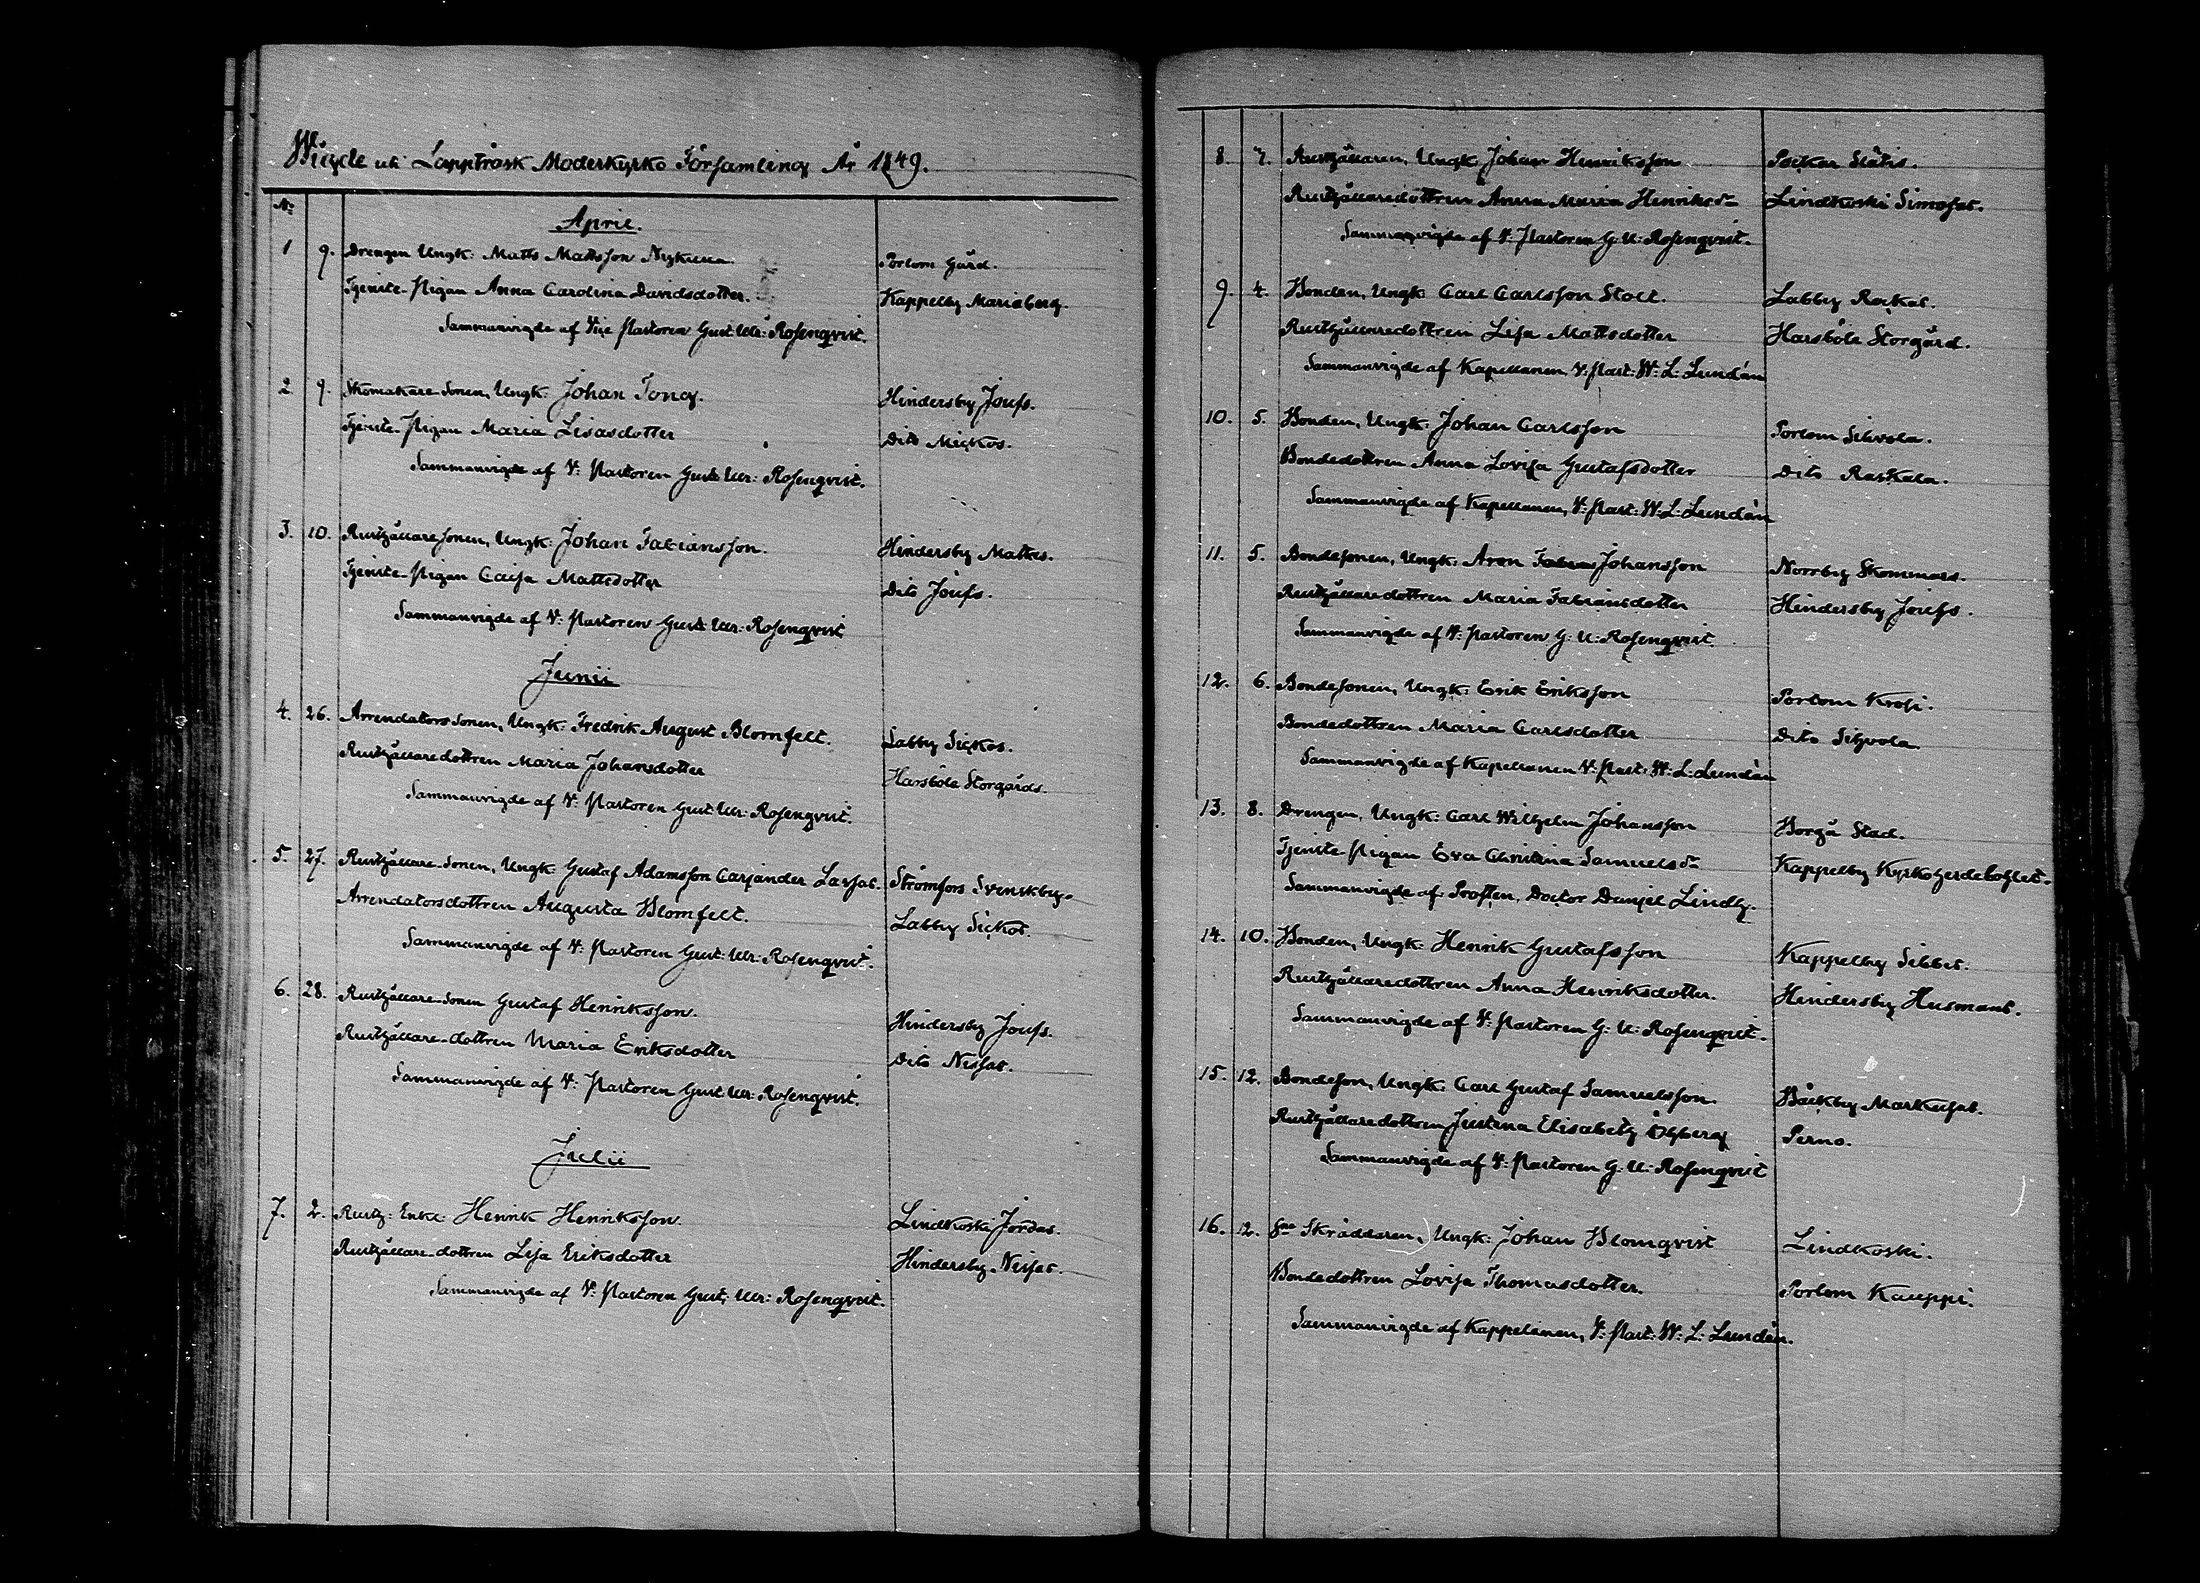 Wigde uti Lappträsk Moderkyrko Församling År 1849.
No
April.
1 9. Drengen Ungk: Matts Mattsson Nykulla Porlom Gård.
Tjenste-Pigan Anna Carolina Davidsdotter. Kappelby Mariaberg.
Sammanvigde af Vice Pastoren Gust: Ulr: Rosenqvist.
2 9. Skomakare-Sonen, Ungk: Johan Tong. Hindersby Joufs.
Tjenste-Pigan Maria Lisasdotter Dito Mickos.
Sammanvigde af V: Pastoren Gust: Ulr: Rosenqvist.
3. 10. Rusthållaresonen, Ungk: Johan Fabiansson. Hindersby Mattas.
Tjenste-Pigan Caisa Mattsdotter Dito Joufs.
Sammanvigde af V: Pastoren Gust: Ulr: Rosenqvist
Junii
4. 26. Arrendators Sonen, Ungk: Fredrik August Blomfelt. Labby Sickos.
Rusthållaredottren Maria Johansdotter Harsböle Storgårds.
Sammanvigde af V: Pastoren Gust: Ulr: Rosenqvist.
5. 27. Rusthållare-Sonen, Ungk: Gustaf Adamsson Carjander Lassas. Strömfors Svenskby.
Arrendatorsdottren Augusta Blomfelt. Labby Sickos.
Sammanvigde af V: Pastoren Gust: Ulr: Rosenqvist.
6. 28. Rusthållare-Sonen Gustaf Henriksson. Hindersby Joufs.
Rusthållare-dottren Maria Eriksdotter Dito Nissas.
Sammanvigde af V: Pastoren Gust: Ulr: Rosenqvist.
Julii
7. 2. Rusth: Enkl: Henrik Henriksson. Lindkoski Jordas.
Rusthållare-dottren Lisa Eriksdotter Hindersby Nissas.
Sammanvigde af V: Pastoren Gust: Ulr: Rosenqvist.
8. Rusthållaren, Ungk: Johan Henriksson Pockar Slätis.
Rusthållaredottren Anna Maria Henriksdr Lindkoski Simosas.
Sammanvigde af V: Pastoren G: U: Rosenqvist.
9. 4. Bonden, Ungk: Carl Carlsson Stolt. Labby
Rusthållaredottren Lisa Mattsdotter Harsböle Storgård.
Sammanvigde af Kapellanen, V: Past: W: L: Lundán
10. 5. Bonden, Ungk: Johan Carlsson Porlom Sihvola.
Bondedottren Anna Lovisa Gustafsdotter Dito Raskala.
Sammanvigde af Kapellanen, V: Past: W: L: Lundán
11. 5. Bondesonen, Ungk: Aron Johansson Norrby Skommars.
Rusthållaredottren Maria Fabiansdotter Hindersby Joufs.
Sammanvigde af V: Pastoren G: U: Rosenqvist.
12. 6. Bondesonen, Ungk: Erik Eriksson Porlom Krosi.
Bondedottren Maria Carlsdotter Dito Sihvola
Sammanvigde af Kapellanen V: Past: W: L: Lundán
13. 8. Drengen, Ungk: Carl Wilhelm Johansson Borgå Stad.
Tjenste-Pigan Eva Christina Samuelsdr Kappelby Kyrkoherdebohlet.
Sammanvigde af: Prosten, Doctor Danjel Lindh.
14. 10. Bonden, Ungk: Henrik Gustafsson Kappelby Sibbes.
Rusthållaredottren Anna Henriksdotter. Hindersby Husmans.
Sammanvigde af V: Pastoren G: U: Rosenqvist.
15. 12. Bondeson, Ungk: Carl Gustaf Samuelsson. Bäckby Markusas.
Rusthållaredottren Justina Elisabeth Öhberg Perno.
Sammanvigde af V: Pastoren G: U: Rosenqvist
16. 12. Sne Skräddaren, Ungk: Johan Blomqvist Lindkoski.
Bondedottren Lovisa Thomasdotter. Porlom Kauppi.
Sammanvigde af Kappelanen, V: Past: W: L: Lundán.